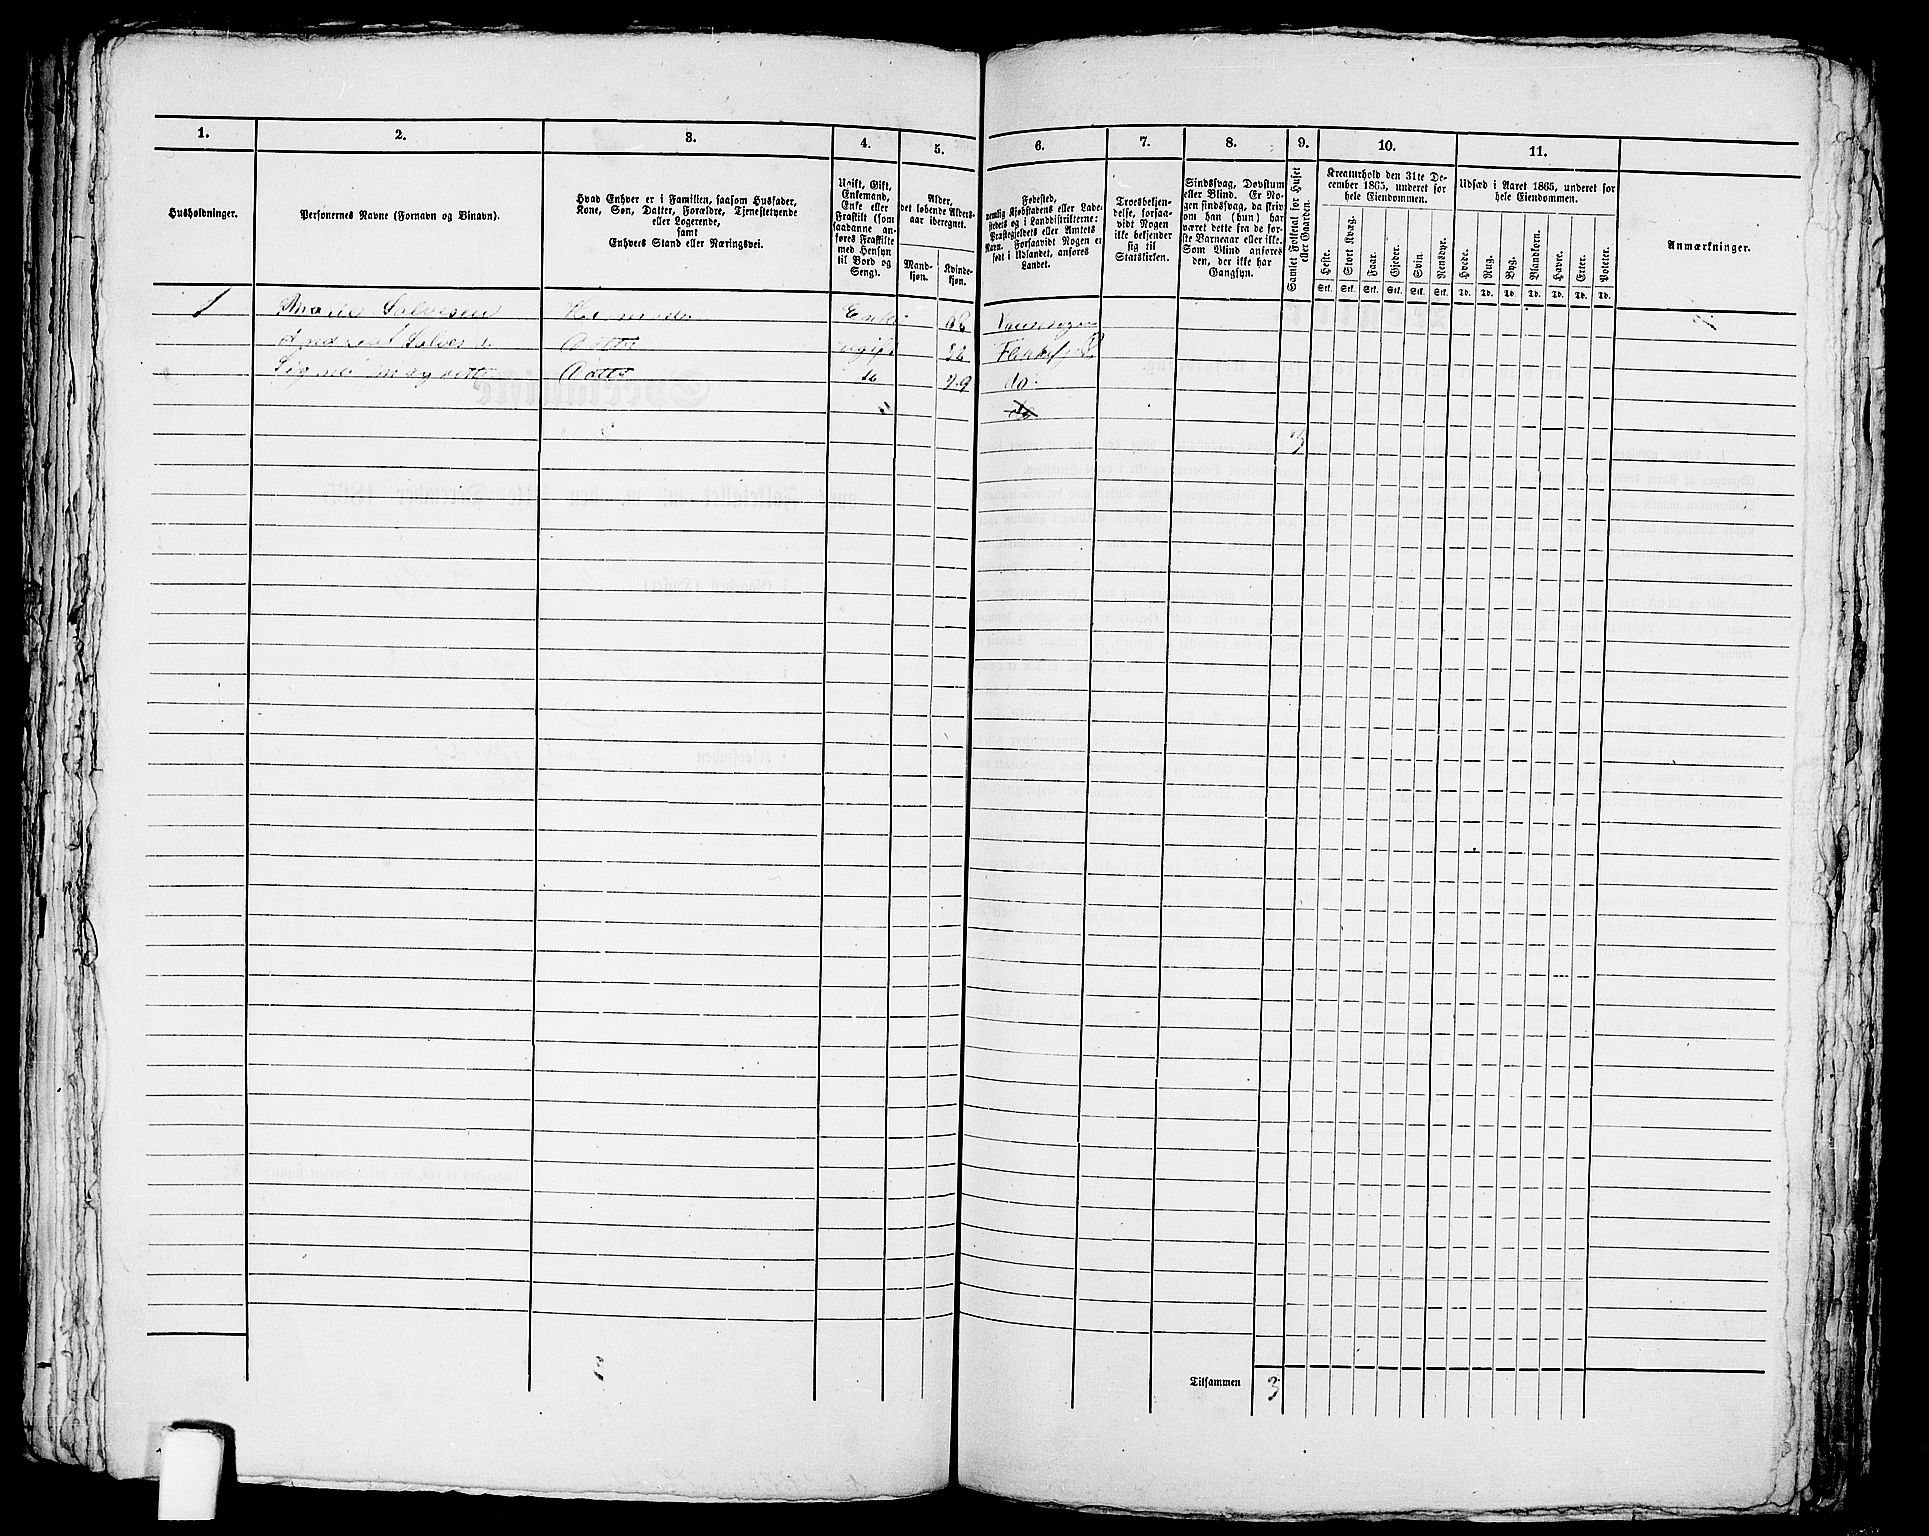 1. 2. 3. 4. 5. 6. 7. 8. 9. 10. 11.
Husholdninger.
Personernes Navne (Fornavn og Binavn).
Hvad Enhver er i Familien, saasom Husfader,
Kone, Søn, Datter, Forældre, Tjenestetyende
eller Logerende,
samt
Enhvers Stand eller Næringsvei.
Ugift, Gift,
Enkemand,
Enke eller
Fraskilt (som
saadanne an-
føres Fraskilte
med Hensyn
til Bord og
Seng).
Alder,
det løbende Alders-
aar iberegnet.
Mand-
kjøn.
Kvinde-
kjøn.
Fødested,
nemlig Kjøbstadens eller Lade-
stedets og i Landdistrikterne:
Præstegjeldets eller Amtets
Navn. Forsaavidt Nogen er
født i Udlandet, anføres
Landet.
Troesbekjen-
delse, forsaa-
vidt Nogen
ikke bekjender
sig til
Statskirken.
Sindssvag, Døvstum
eller Blind. Er No-
gen sindssvag, da skriv
om han (hun) har
været dette fra de før-
ste Barneaar eller ikke.
Som Blind anføres
den, der ikke har
Gangsyn.
Samlet Folketal for Huset
eller Gaarden.
Kreaturhold den 31te De-
cember 1865, underet for
hele Eiendommen.
Heste. Stort Kvæg. Faar. Gjeder. Svin. Rensdyr.
Stk. Stk. Stk. Stk. Stk. Stk.
Udsæd i Aaret 1865, underet for
hele Eiendommen.
Hvede. Rug. Byg. Blandkorn. Havre. Erter. Poteter.
Td. Td. Td. Td. Td. Td. Td.
Anmærkninger.
1 Salvesen Enke
Salves Datter ugift
Datter do 29 do
3
Tilsammen 3